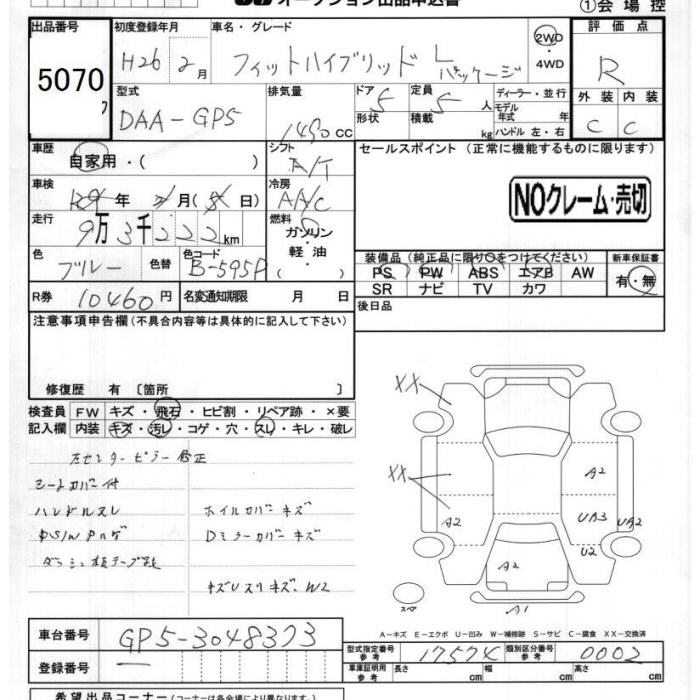 オークション出品申込書
①会場控
出品番号
5070
初度登録年月
H26 2月
車名・グレード
フィットハイブリッド Lパッケージ
2WD・4WD
評価点
R
型式
DAA-GP5
排気量
1490cc
ドア 5
定員 5人
形状
積載 kg
ディーラー・並行
モデル年式 年
ハンドル 左・右
外装 内装
C C
車歴
自家用・( )
シフト
A/T
セールスポイント (正常に機能するものに限ります)
車検
年 月( 日)
冷房
A/C
NOクレーム・売切
走行
9万3千222km
燃料
ガソリン・軽油・( )
色
ブルー
色替
色コード
B-595P
装備品(純正品に限り○をつけてください)
PS PW ABS エアB AW
SR ナビ TV カワ
新車保証書
有・無
R券
10460円
名変通知期限 月 日
後日品
注意事項申告欄(不具合内容等は具体的に記入して下さい)
修復歴 有〔箇所 〕
検査員記入欄
FW キズ・飛石・ヒビ割・リペア跡・×要
内装 キズ・汚レ・コゲ・穴・スレ・キレ・破レ
左センターピラー修正
シートカバー付
ハンドルスレ
ホイルカバーキズ
PS/WPハゲ
Dミラーカバーキズ
ダッシュ板テープ跡
キズUスリキズ、W2
XX
XX
A2
A2
UA3
UA2
U2
A2
A1
スペア
A-キズ E-エクボ U-凹み W-補修跡 S-サビ C-腐食 XX-交換済
車台番号
GP5-3048373
登録番号
型式指定番号 参考
17574
類別区分番号 参考
0002
車庫証明用 参考
長さ 幅 高さ
希望出品コーナー(コーナーは各会場により異なります)